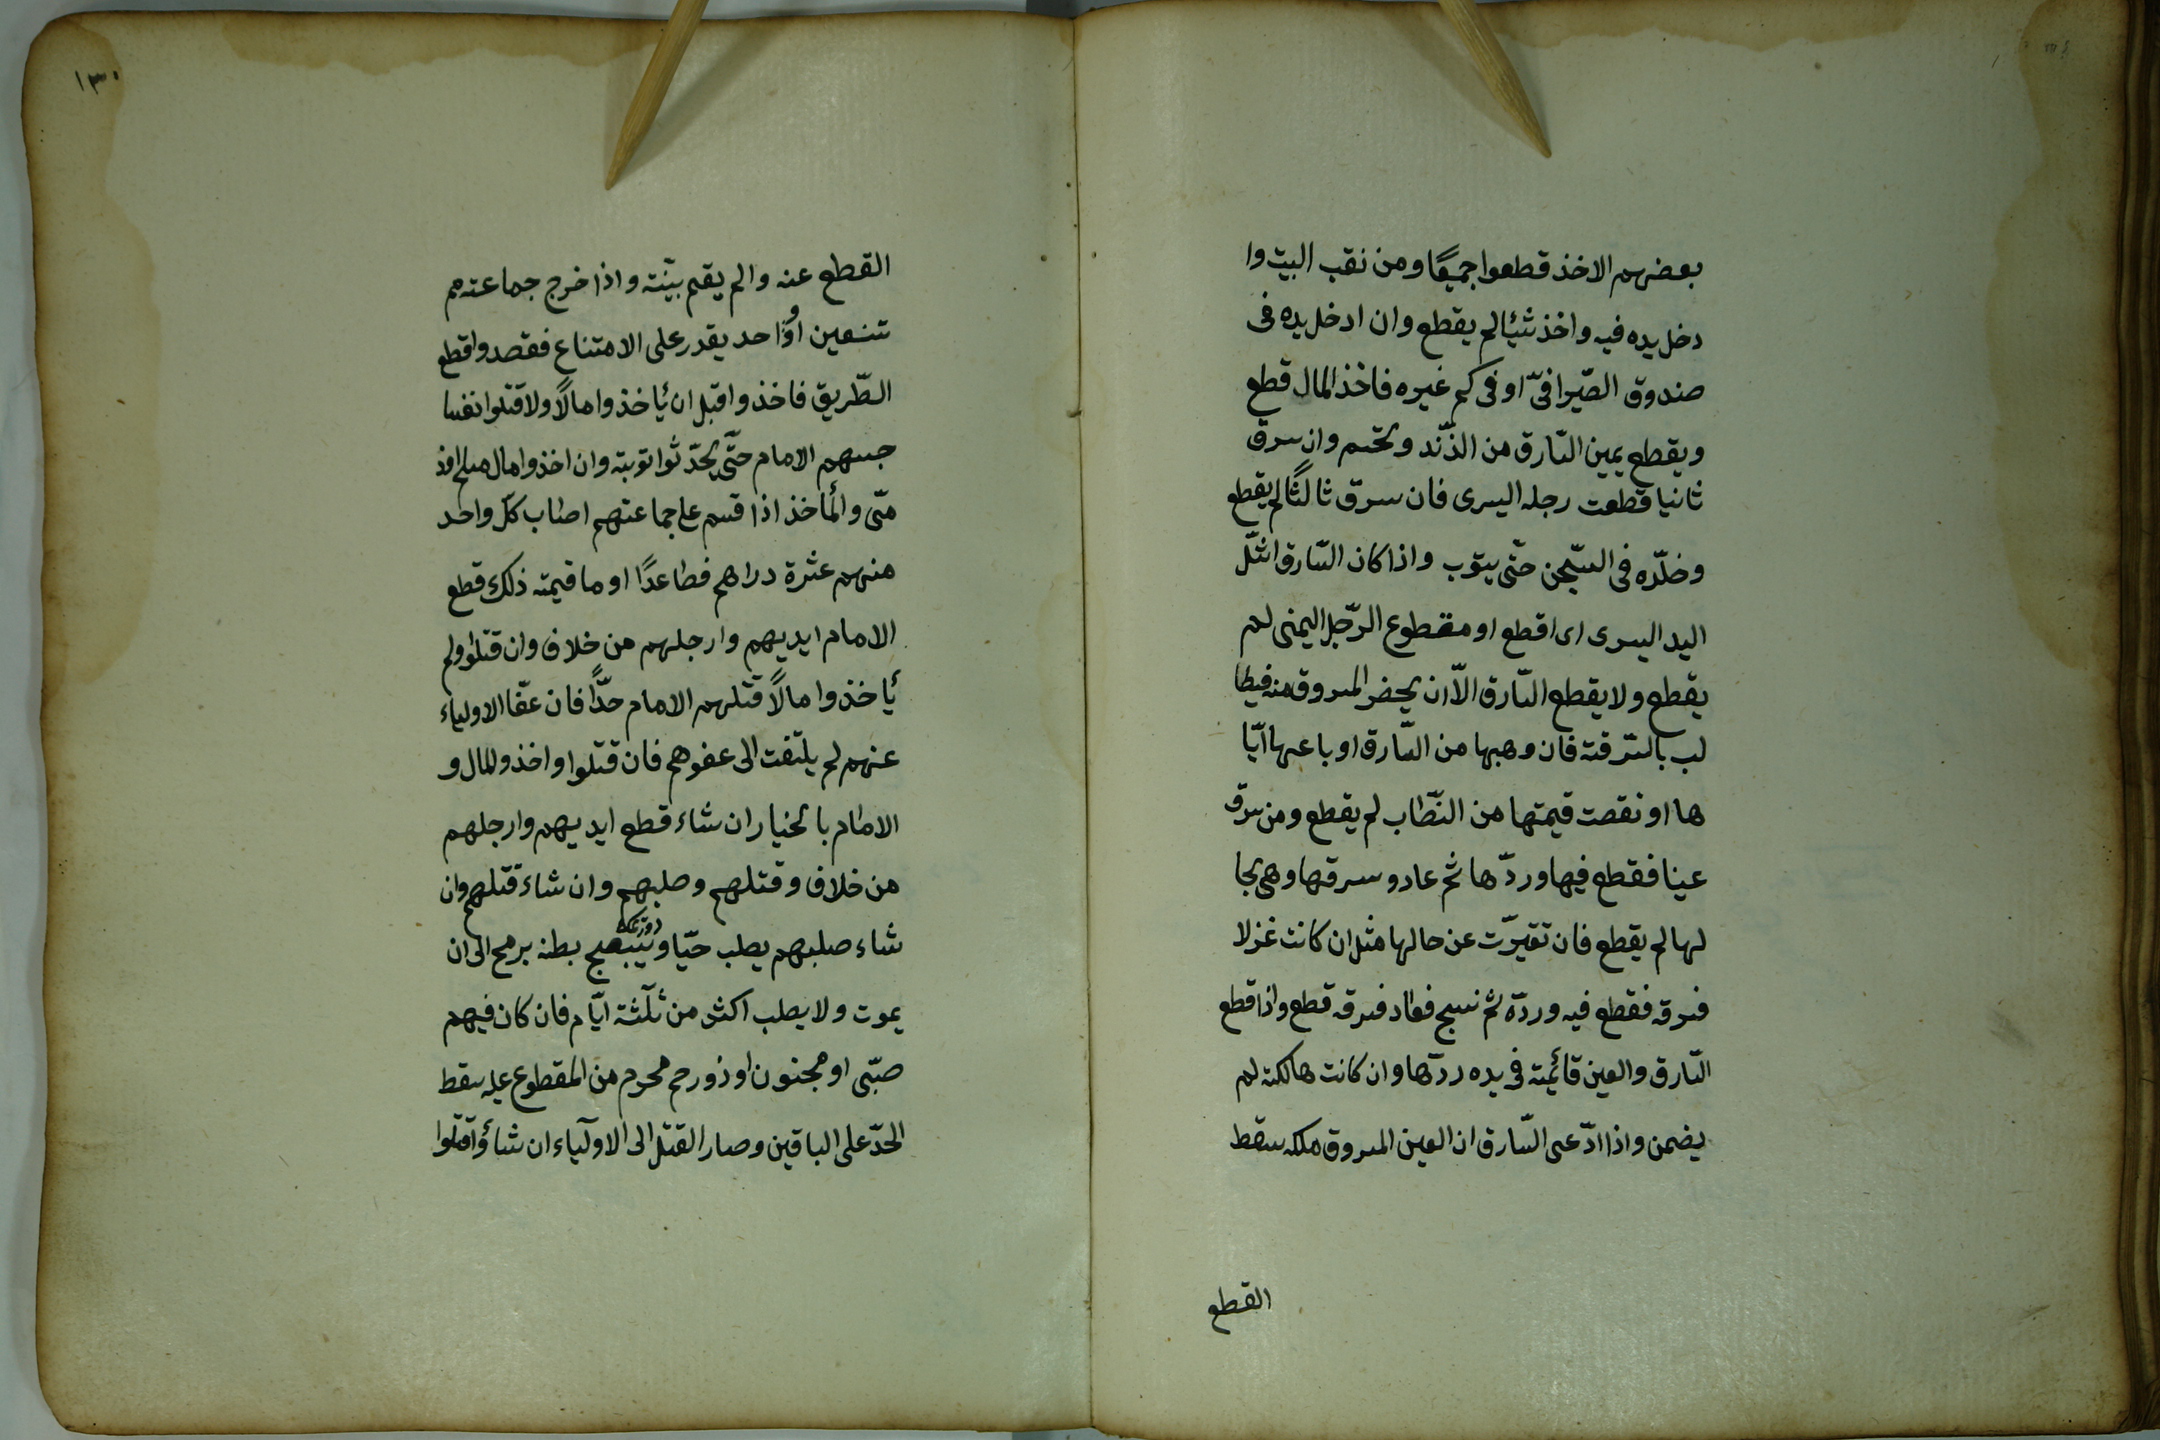 بعضهم الاخذ قطعوا جميعًا ومن نقب البيت وا
دخل يده فيه واخذ شيئا لم يقطع وان ادخل يده فى
صندوق الصّيرافىّ او فى كم غيره فاخذ المال قطع
ويقطع يمين السّارق من الزّند وتحسم وان سرق
ثانيا قطعت رجله اليسرى فان سرق ثالثًا لم يقطع
وخلّده فى السّجن حتّى يتوب واذا كان السّارق اشلّ
اليد اليسرى اى اقطع او مقطوع الرّجل اليمنى لم
يقطع ولا يقطع السّارق الّا ان يحضر المسروق منه فيطا
لب بالسّرقة فان وهبها من السّارق او باعها ايّا
ها او نقصت قيمتها من النّصاب لم يقطع ومن سرق
عينا فقطع فيها وردّها ثم عاد و سرقها وهى بحا
لها لم يقطع فان تغيرّت عن حالها مثل ان كانت غزلا
فسرقه فقطع فيه وردّه ثم نسج فعاد فسرقه قطع واذا قطع
السّارق والعين قائمة فى يده ردّها وان كانت هالكة لم
يضمن واذا ادّعى السّارق ان العين المسروق ملكه سقط
القطع
١٣٠
القطع عنه والم يقم بيّنة واذا خرج جماعة مم
تنعين او واحد يقدر على الامتناع فقصدوا قطع
الطّريق فاخذوا قبل ان يأخذوا مالًا ولا قتلوا نفسا
حبسهم الامام حتّى يحدّثوا توبة وان اخذوا مال مسلم اوذ
مّى والمأخذ اذا قسم على جماعتهم اصاب كلّ واحد
منهم عشرة دراهم فصاعدًا او ما قيمته ذلك قطع
الامام ايديهم وارجلهم من خلاف وان قتلوا ولم
يأخذوا مالًا قتلهم الامام حدًّا فان عفا الاولياء
عنهم لم يلتفت الى عفوهم فان قتلوا واخذو المال و
الامام بالخيار ان شاء قطع ايديهم وارجلهم
من خلاف وقتلهم وصلبهم وان شاء قتلهم وان
شاء صلبهم يصلب حيّا و يبعج بطنه برمح الى ان
يموت ولا يصلب اكثر من ثلثة ايّام فان كان فيهم
صبّى او مجنون او ذو رحم محرم من المقطوع عليه سقط
الحدّ على الباقين وصار القتل الى الاولياء ان شاؤا قتلوا